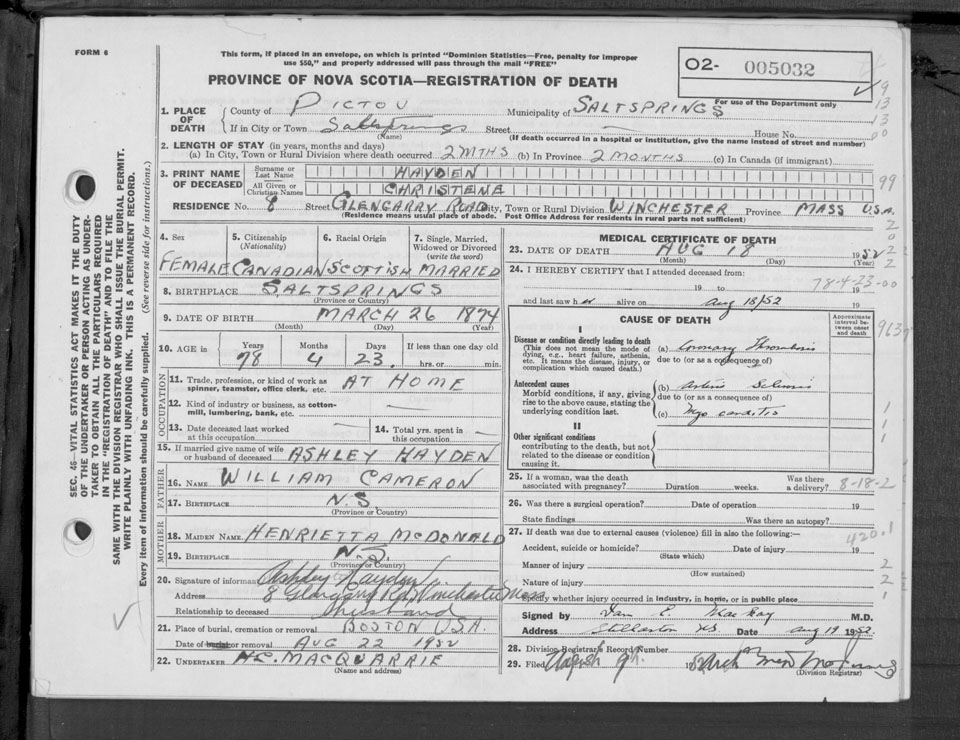 FORM 6
This form, if placed in an envelope, on which is printed "Dominion Statistics—Free, penalty for improper
use $50," and properly addressed will pass through the mail "FREE"
PROVINCE OF NOVA SCOTIA—REGISTRATION OF DEATH
O2- 005032
For use of the Department only
1. PLACE OF DEATH
County of PICTOU Municipality of SALTSPRINGS
If in City or Town Saltsprings Street — House No.
(Name) (If death occurred in a hospital or institution, give the name instead of street and number)
2. LENGTH OF STAY (in years, months and days)
(a) In City, Town or Rural Division where death occurred 2 MTHS (b) In Province 2 MONTHS (c) In Canada (if immigrant)
3. PRINT NAME OF DECEASED
Surname or Last Name HAYDEN
All Given or Christian Names CHRISTENE
99
RESIDENCE No. 8 Street GLENGARRY ROAD City, Town or Rural Division WINCHESTER Province MASS U.S.A.
(Residence means usual place of abode. Post Office Address for residents in rural parts not sufficient)
4. Sex
5. Citizenship (Nationality)
6. Racial Origin
7. Single, Married, Widowed or Divorced (write the word)
FEMALE CANADIAN SCOTTISH MARRIED
8. BIRTHPLACE SALTSPRINGS
(Province or Country)
9. DATE OF BIRTH MARCH 26 1874
(Month) (Day) (Year)
10. AGE in
Years Months Days If less than one day old
78 4 23 hrs. or min.
OCCUPATION
11. Trade, profession, or kind of work as spinner, teamster, office clerk, etc. AT HOME
12. Kind of industry or business, as cotton-mill, lumbering, bank, etc. —
13. Date deceased last worked at this occupation —
14. Total yrs. spent in this occupation —
15. If married give name of wife or husband of deceased ASHLEY HAYDEN
FATHER
16. NAME WILLIAM CAMERON
17. BIRTHPLACE N.S
(Province or Country)
MOTHER
18. MAIDEN NAME HENRIETTA McDONALD
19. BIRTHPLACE N.S.
(Province or Country)
20. Signature of informant Ashley Hayden
Address 8 Glengarry Rd Winchester Mass
Relationship to deceased Husband
21. Place of burial, cremation or removal BOSTON U.S.A.
Date of burial or removal AUG 22 1952
22. UNDERTAKER H.C. MACQUARRIE
(Name and address)
MEDICAL CERTIFICATE OF DEATH
23. DATE OF DEATH AUG 18 1952
(Month) (Day) (Year)
24. I HEREBY CERTIFY that I attended deceased from:
78-4-23-00
19 to 19
and last saw her alive on Aug 18/52 19
CAUSE OF DEATH
Approximate interval between onset and death
I
Disease or condition directly leading to death
(This does not mean the mode of dying, e.g., heart failure, asthenia, etc. It means the disease, injury, or complication which caused death.)
(a) Coronary Thrombosis
due to (or as a consequence of)
Antecedent causes
Morbid conditions, if any, giving rise to the above cause, stating the underlying condition last.
(b)
due to (or as a consequence of)
(c) Myo carditis
II
Other significant conditions
contributing to the death, but not related to the disease or condition causing it.
25. If a woman, was the death associated with pregnancy? Duration weeks. Was there a delivery? 8-18-2
26. Was there a surgical operation? Date of operation 19
State findings Was there an autopsy?
27. If death was due to external causes (violence) fill in also the following:— 420.1
Accident, suicide or homicide? Date of injury 19
(State which)
Manner of injury
(How sustained)
Nature of injury
Specify whether injury occurred in industry, in home, or in public place
Signed by Dan E. MacKay M.D.
Address Stellarton N.S. Date Aug 19 1952
28. Division Registrar's Record Number
29. Filed
(Division Registrar)
SEC. 46—VITAL STATISTICS ACT MAKES IT THE DUTY
OF THE UNDERTAKER OR PERSON ACTING AS UNDER-
TAKER TO OBTAIN ALL THE PARTICULARS REQUIRED
IN THE "REGISTRATION OF DEATH" AND TO FILE THE
SAME WITH THE DIVISION REGISTRAR WHO SHALL ISSUE THE BURIAL PERMIT.
WRITE PLAINLY WITH UNFADING INK. THIS IS A PERMANENT RECORD.
Every item of information should be carefully supplied. (See reverse side for instructions.)